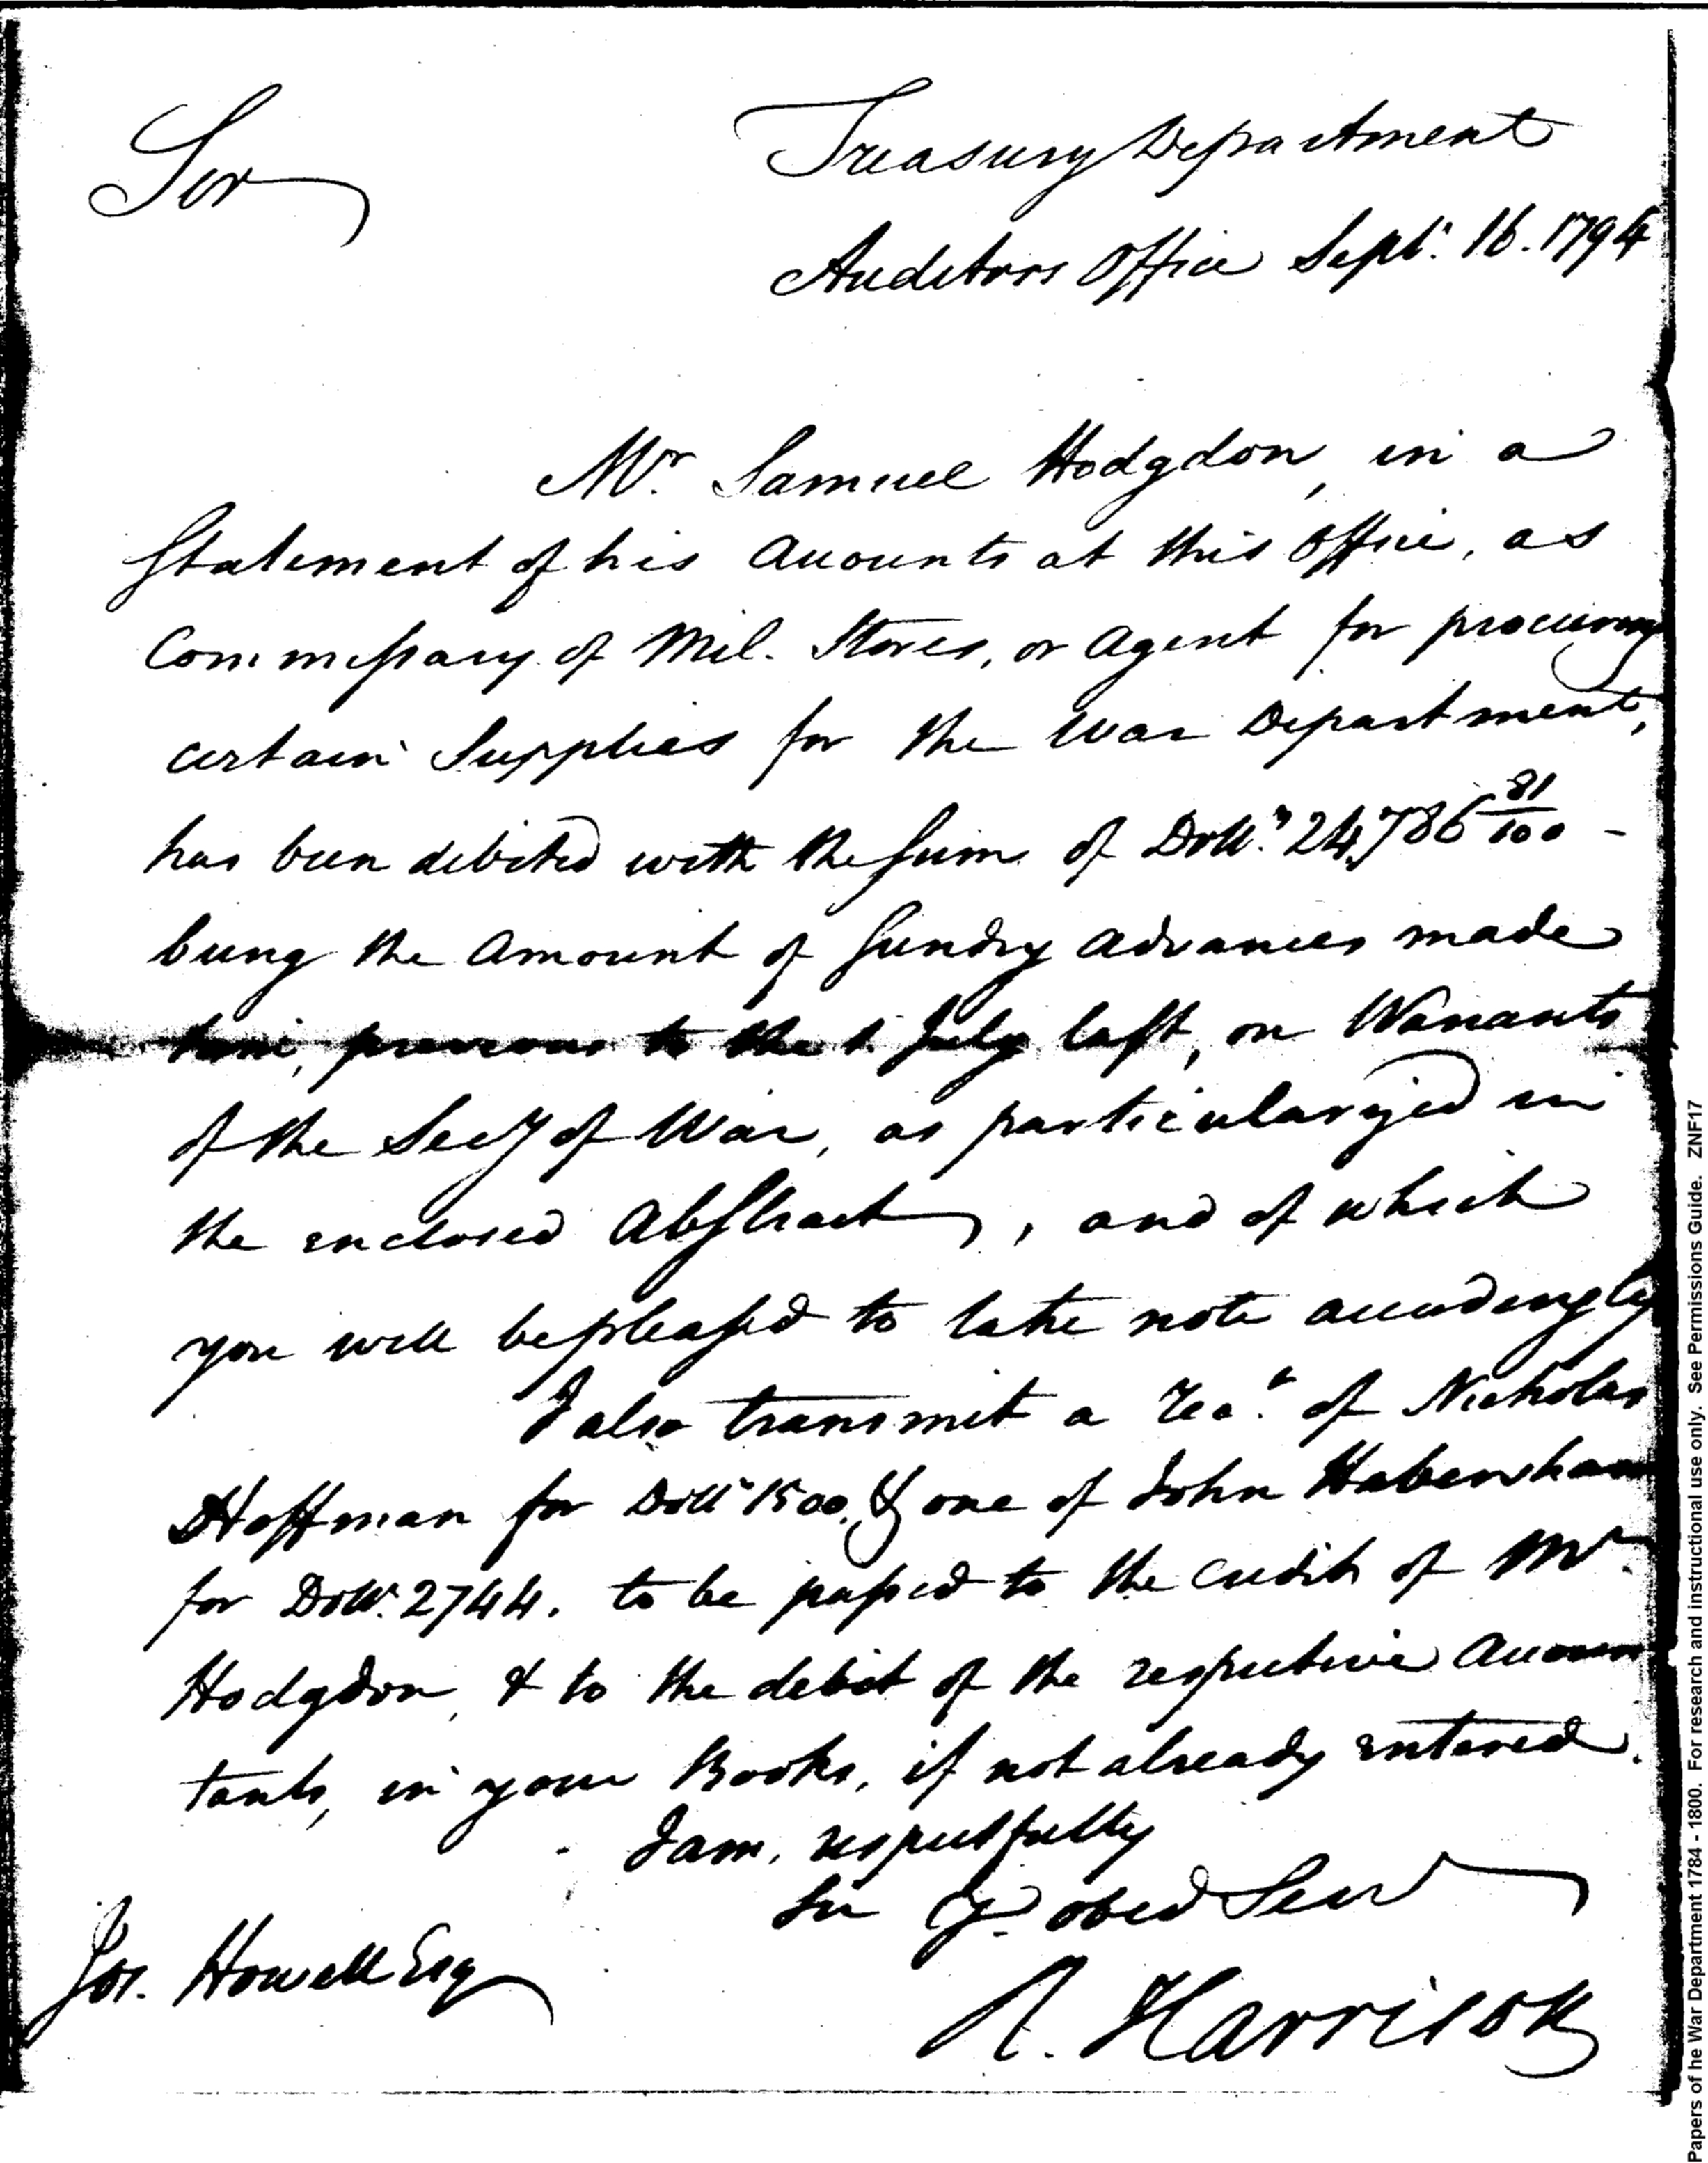 Sir
Treasury Department
Auditors Office Sept.r 16. 1794
Mr. Samuel Hodgdon, in a
Statement of his Accounts at this Office, as
Commissary of Mil. Stores, or Agent for procuring
certain Supplies for the War Department,
has been debited with the Sum of Doll.s 24,786 81/100 -
being the Amount of Sundry Advances made
him, previous to the 1. July last, on Warrants
of the Secy of War, as particularized in
the enclosed Abstract, and of which
you will be pleased to take note accordingly
I also transmit a Rec.t of Nicholas
Hoffman for Dolls 1500, & one of John Habersham
for Doll.s 2744. to be passed to the credit of Mr.
Hodgdon, & to the debit of the respective Accoun
tants, in your Books, if not already entered.
I am, respectfully
Sir Yr. obed Servt
Jos. Howell Esq
R. Harrison
Papers of he War Department 1784 - 1800. For research and instructional use only. See Permissions Guide. ZNF17